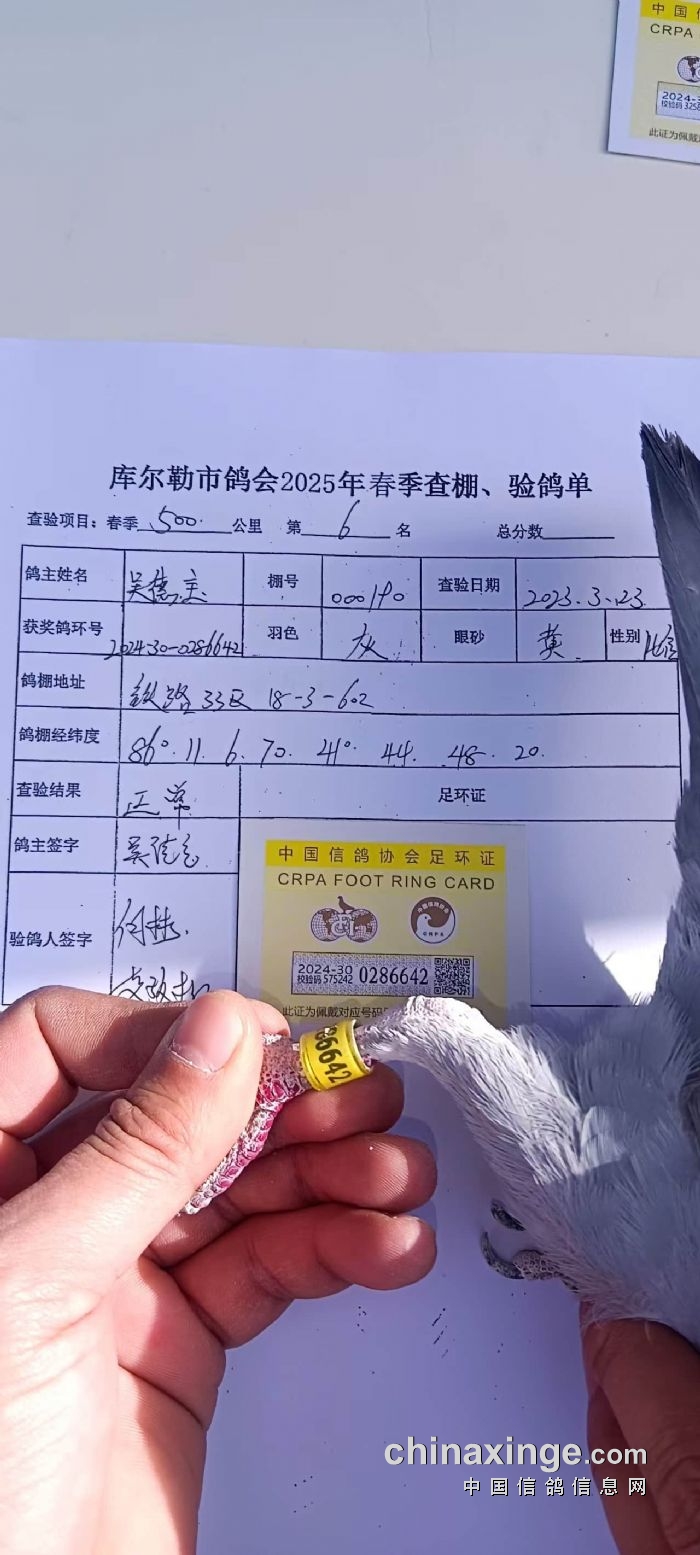 中国信
CRPA
2024-3
校验码 325
此证为佩戴
库尔勒市鸽会2025年春季查棚、验鸽单
查验项目：春季 500. 公里 第 6 名 总分数
鸽主姓名 吴德 棚号 000190 查验日期 2023.3.23
获奖鸽环号 2024-30-0286642 羽色 灰 眼砂 黄 性别
鸽棚地址 铁路33区 18-3-602
鸽棚经纬度 86°.11.6.70. 41°.44.48.20.
查验结果 正常 足环证
鸽主签字 吴
验鸽人签字 何
中国信鸽协会足环证
CRPA FOOT RING CARD
中国信鸽协会
CRPA
2024-30
校验码 575242
0286642
此证为佩戴对应号码
86642
chinaxinge.com
中国信鸽信息网